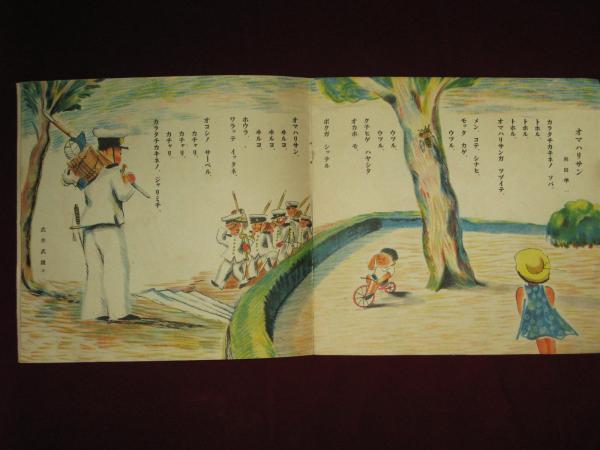 オマハリサン
カラタチカキネノ ソバ、
トホル
トホル
オマハリサンガ ツヅイテ、
トホル
メン、コテ、シナヒ、
モッタ カゲ
ウツル
ウツル、
ウツル、
クチヒゲ ハヤシタ
オカホ モ、
ボクガ シッテル
オマハリサン、
ヰルヨ、
ヰルヨ、
ホウラ、
ワラッテ イッタネ、
オコシノ サーベル、
カチャリ、
カチャリ、
カチャリ
カラタチカキネノ、ジャリミチ
武井武雄